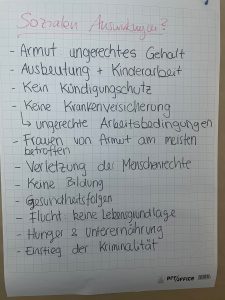 Sozialen Auswirkungen?
- Armut ungerechtes Gehalt
- Ausbeutung + Kinderarbeit
- Kein Kündigungschutz
- Keine Krankenversicherung
↳ ungerechte Arbeitsbedingungen
- Frauen von Armut am meisten
betroffen
- Verletzung der Menschenrechte
- Keine Bildung
- Gesundheitsfolgen
- Flucht keine Lebensgrundlage
- Hunger & Unterernährung
- Einstieg der Kriminalität
OFFICE